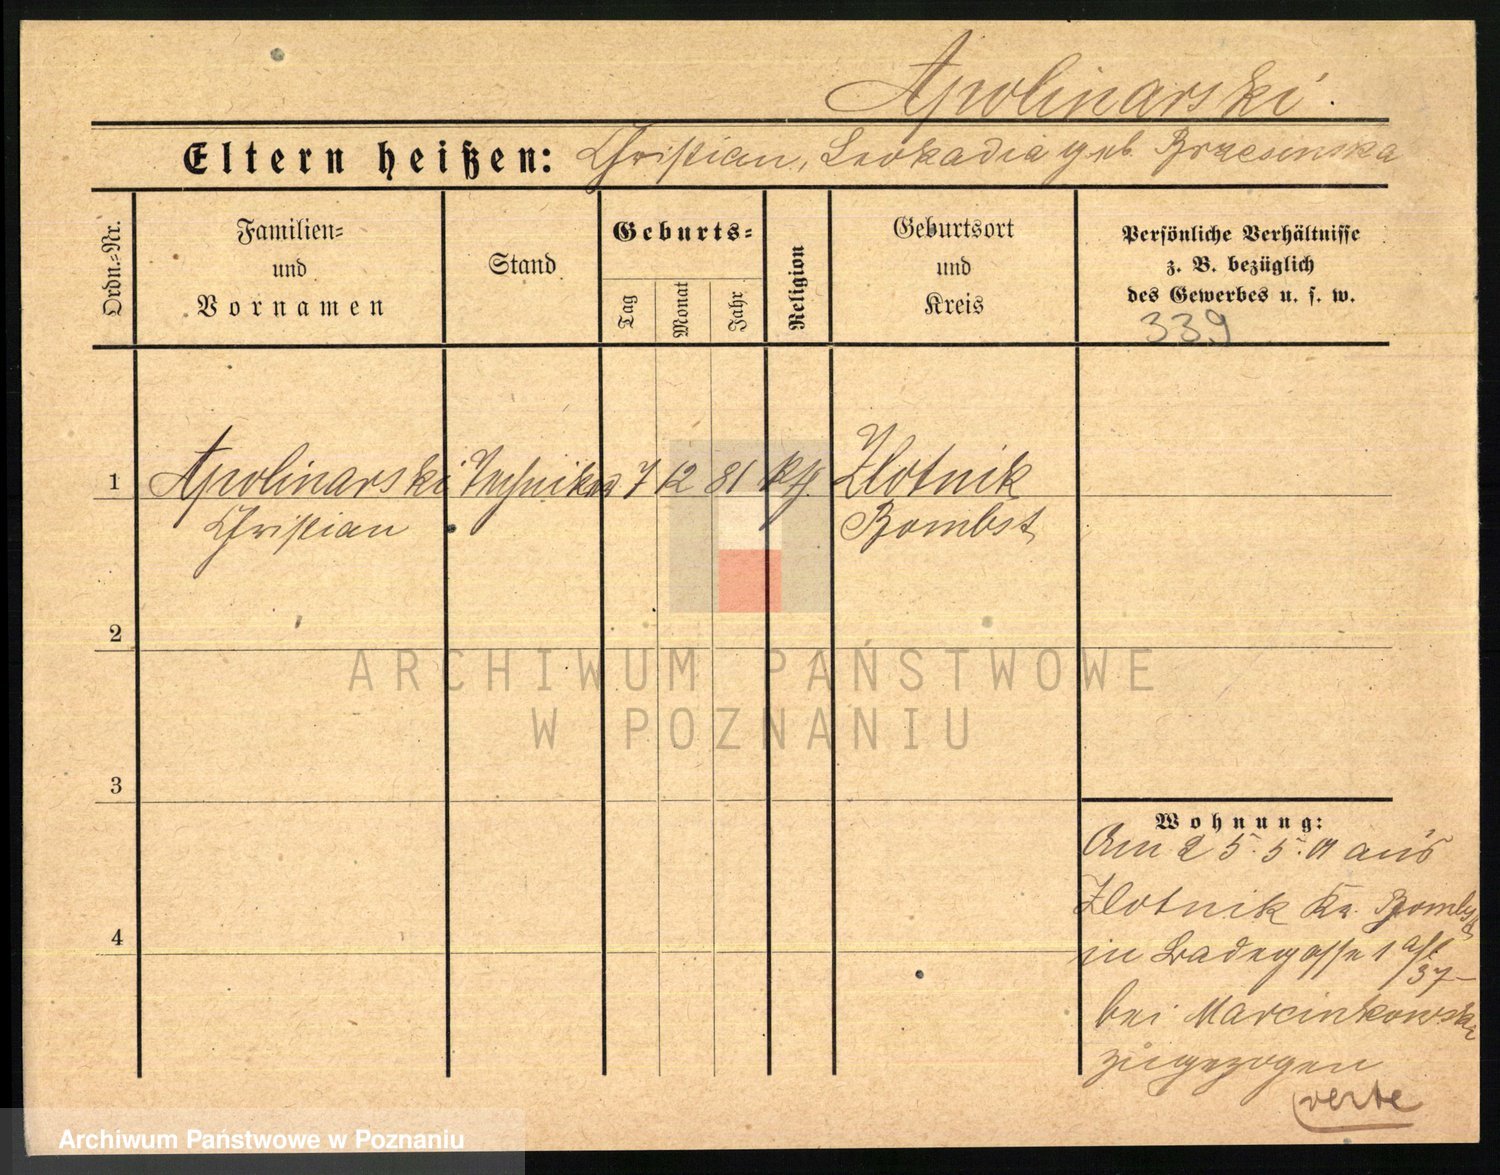 Apolinarski.
Eltern heißen: Christian, Leokadia geb. Brzesinska
Ordn.-Nr.
Familien-
und
Vornamen
Stand
Geburts-
Tag
Monat
Jahr
Religion
Geburtsort
und
Kreis
Persönliche Verhältnisse
z. B. bezüglich
des Gewerbes u. s. w.
339
1 Apolinarski Techniker 7 12 81 kth. Zlotnik
Christian Bombst
2
3
4
ARCHIWUM PAŃSTWOWE
W POZNANIU
Wohnung:
Am 25.5.01 aus
Zlotnik Kr. Bombst
in Badegasse 1
37
bei Marcinkowska
zugezogen
verte
Archiwum Państwowe w Poznaniu